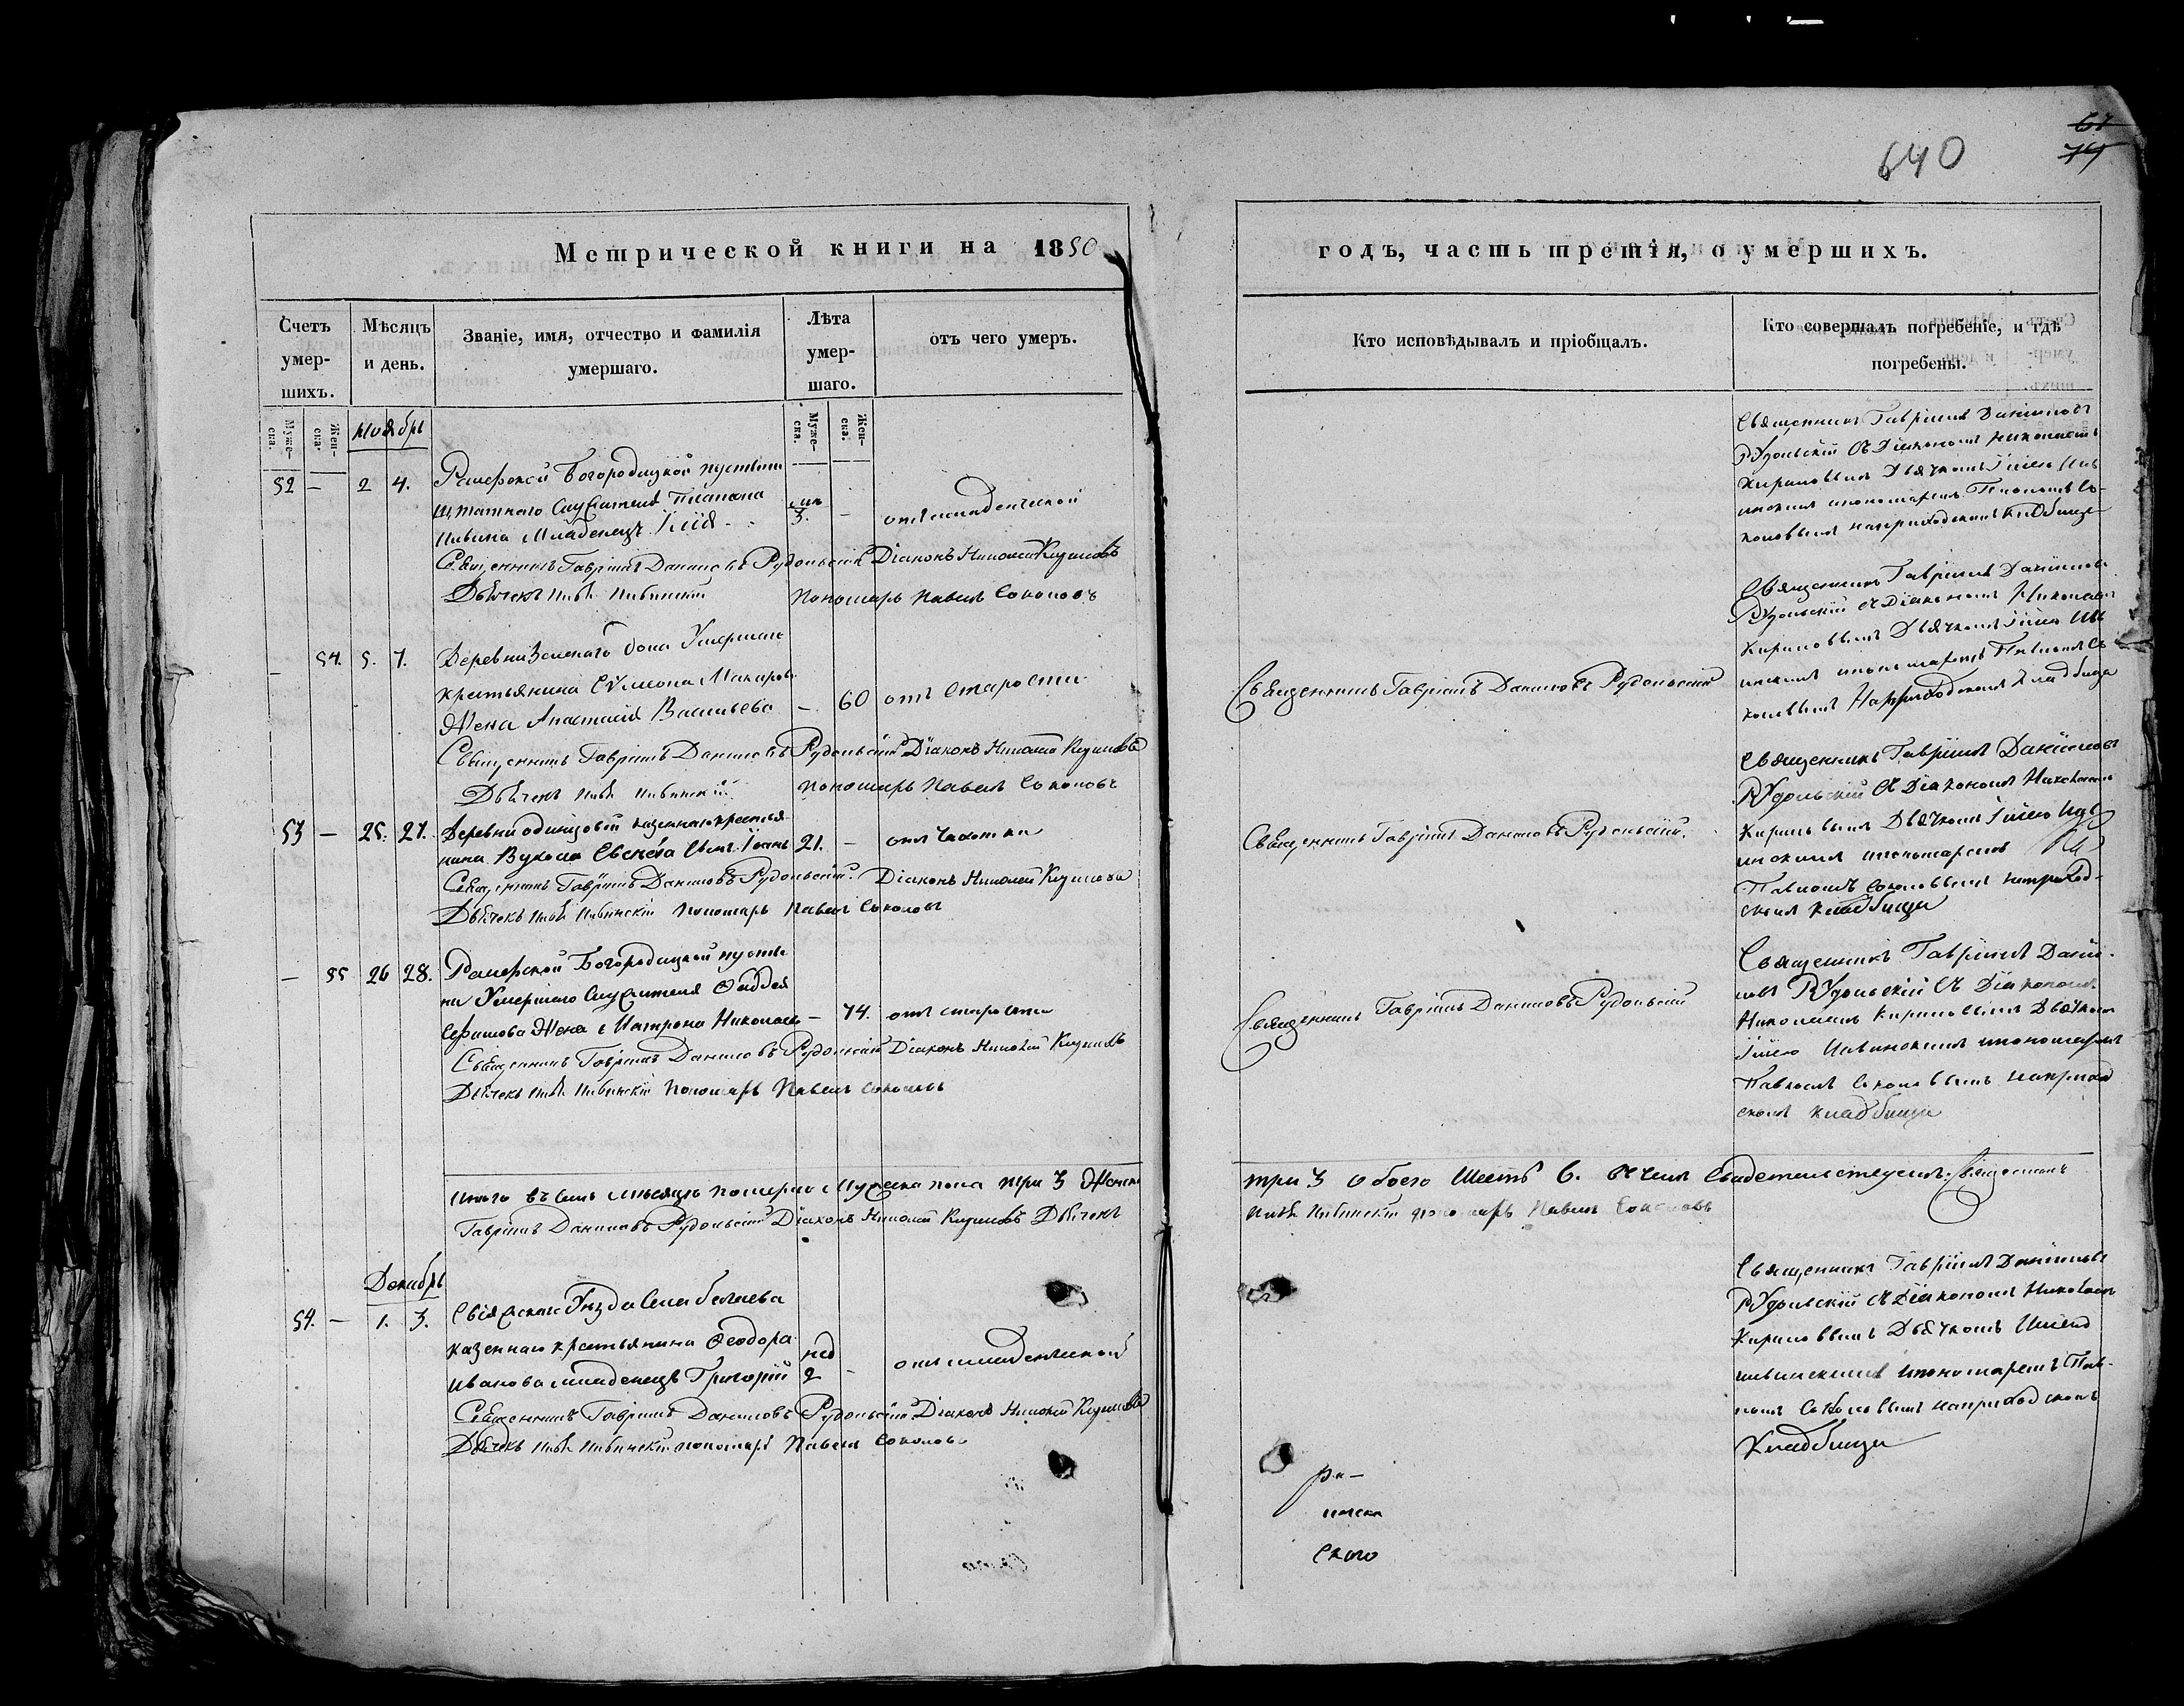 640
67
74
Метрической книги на 1850
годъ, часть третія, о умершихъ.
Счетъ умер-шихъ.
Мѣсяцъ и день.
Званіе, имя, отчество и фамилія умершаго.
Лѣта умер-шаго.
отъ чего умеръ.
Кто исповѣдывалъ и пріобщалъ.
Кто совершалъ погребеніе, и гдѣ погребены.
Муже-ска.
Жен-ска.
Ноябрь
Муже-ска.
Жен-ска.
52 — 2 4. Раифской Богородицкой пустыни
штатного служителя
младенецъ 3. — отъ младенческой
Священникъ Гавріилъ Даниловъ Рудольскій Діаконъ Николай Кириловъ
Дьячекъ Пономарь Павелъ Соколовъ
Священникъ Гавріилъ Даніиловъ
Рудольскій съ Діакономъ Николаемъ
Кириловымъ Дьячкомъ
пономаремъ Павломъ Со-
коловымъ на приходскомъ кладбище
— 54. 5. 7. Деревни Зеленаго дола Умершаго
крестьянина Сумеона Макарова
Жена Анастасія Васильева — 60 отъ старости
Священникъ Гавріилъ Даниловъ Рудольскій Діаконъ Николай Кириловъ
Дьячекъ Пономарь Павелъ Соколовъ
Священникъ Гавріилъ Даниловъ Рудольскій
Священникъ Гавріилъ Даніиловъ
Рудольскій съ Діакономъ Николаемъ
Кириловымъ Дьячкомъ
пономаремъ Павломъ Со-
коловымъ На приходскомъ кладбище
53 — 25. 27. Деревни одинцовой казеннаго крестья-
нина Сынъ Іоаннъ 21. — отъ чахотки
Священникъ Гавріилъ Даниловъ Рудольскій Діаконъ Николай Кириловъ
Дьячекъ Пономарь Павелъ Соколовъ
Священникъ Гавріилъ Даниловъ Рудольскій.
Священникъ Гавріилъ Даніиловъ
Рудольскій съ Діакономъ Николаемъ
Кириловымъ Дьячкомъ
пономаремъ
Павломъ Соколовымъ на приход-
скомъ кладбище
— 55 26 28. Раифской Богородицкой пусты-
ни Умершаго служителя Фаддея
Ефимова Жена Матрона Николаева — 74. отъ старости
Священникъ Гавріилъ Даниловъ Рудольскій Діаконъ Николай Кириловъ
Дьячекъ Пономарь Павелъ Соколовъ
Священникъ Гавріилъ Даниловъ Рудольскій
Священникъ Гавріилъ Даніи-
ловъ Рудольскій съ Діакономъ
Николаемъ Кириловымъ Дьячкомъ
пономаремъ
Павломъ Соколовымъ на приход
скомъ кладбище
Итого въ семъ мѣсяцѣ померло Мужеска пола три 3 Женска
три 3 обоего Шесть 6. въ чемъ свидетельствуемъ. Священникъ
Гавріилъ Даниловъ Рудольскій Діаконъ Николай Кириловъ Дьячекъ
пономарь Павелъ Соколовъ
Декабрь
54. — 1. 3. Свіяжскаго Уѣзда Села беляева
казеннаго крестьянина Феодора
Иванова младенецъ Григорій нед 2 — отъ младенческой
Священникъ Гавріилъ Даниловъ Рудольскій Діаконъ Николай Кириловъ
Дьячекъ пономарь Павелъ Соколовъ
Священникъ Гавріилъ Даніиловъ
Рудольскій съ Діакономъ Николаемъ
Кириловымъ Дьячкомъ
пономаремъ Пав-
ломъ Соколовымъ на приходскомъ
Кладбище